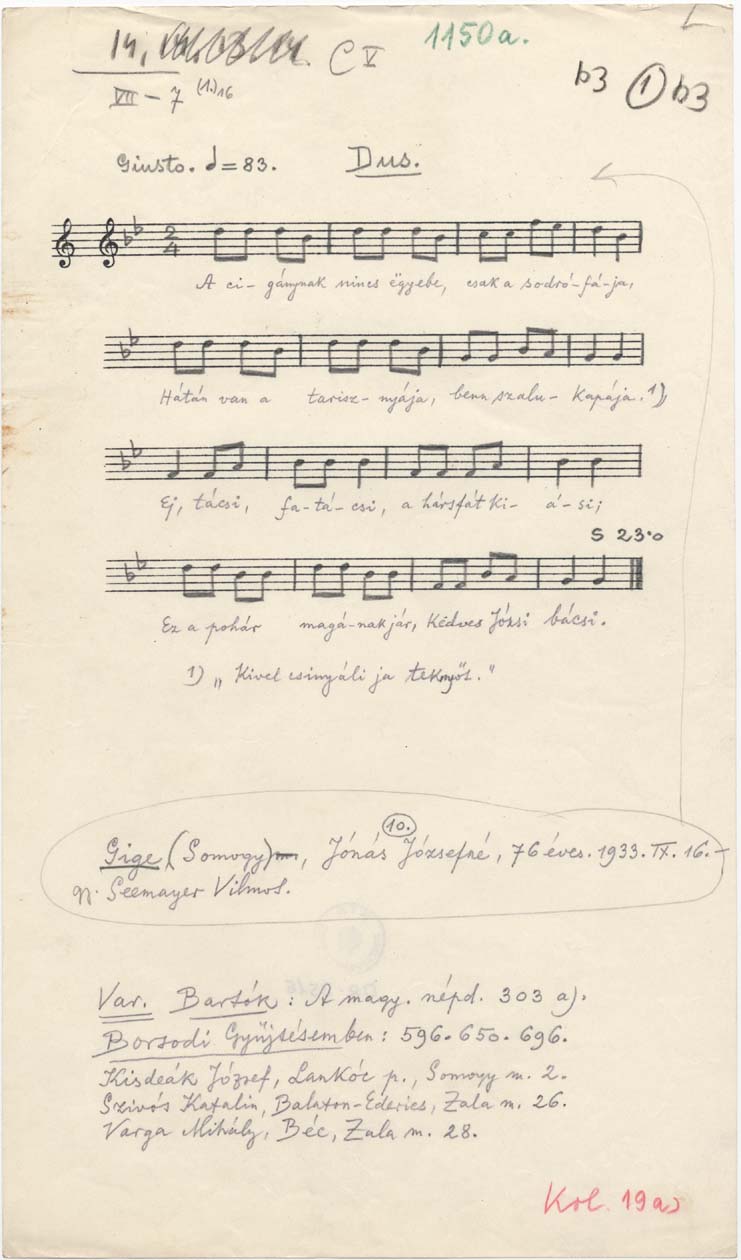 14. C V 1150a.
VII – 7 (1.)16 b3 1 b3
Giusto. = 83. Dus.
2 4
A ci - gánynak nincs ëgyebe, csak a sodró-fá-ja,
Hátán van a tarisz-nyája, benn szalu- kapája. 1)
Ej, tácsi, fa-tá-csi, a hársfát ki- á-si;
S 23·0
Ez a pohár magá-nak jár, Këdves Józsi bácsi.
1) „Kivel csinyáli ja teknyőt."
10.
Gige (Somogy), Jónás Józsefné, 76 éves. 1933. IX. 16.-
Gy. Seemayer Vilmos.
Var. Bartók: A magy. népd. 303 a).
Borsodi Gyüjtésemben: 596. 650. 696.
Kisdeák József, Lankóc p., Somogy m. 2.
Szivós Katalin, Balaton-Ederics, Zala m. 26.
Varga Mihály, Béc, Zala m. 28.
Kol. 19a)